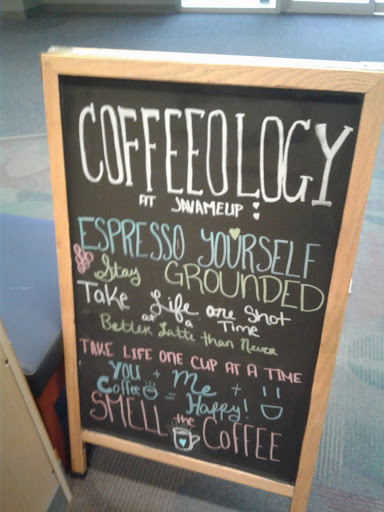 COFFEEOLOGY
AT JAVAMEUP!
ESPRESSO YOURSELF
Stay GROUNDED
Take Life one Shot
at a Time
Better Latte than Never
TAKE LIFE ONE CUP AT A TIME
YOU + Me +
Coffee = Happy!
SMELL the COFFEE